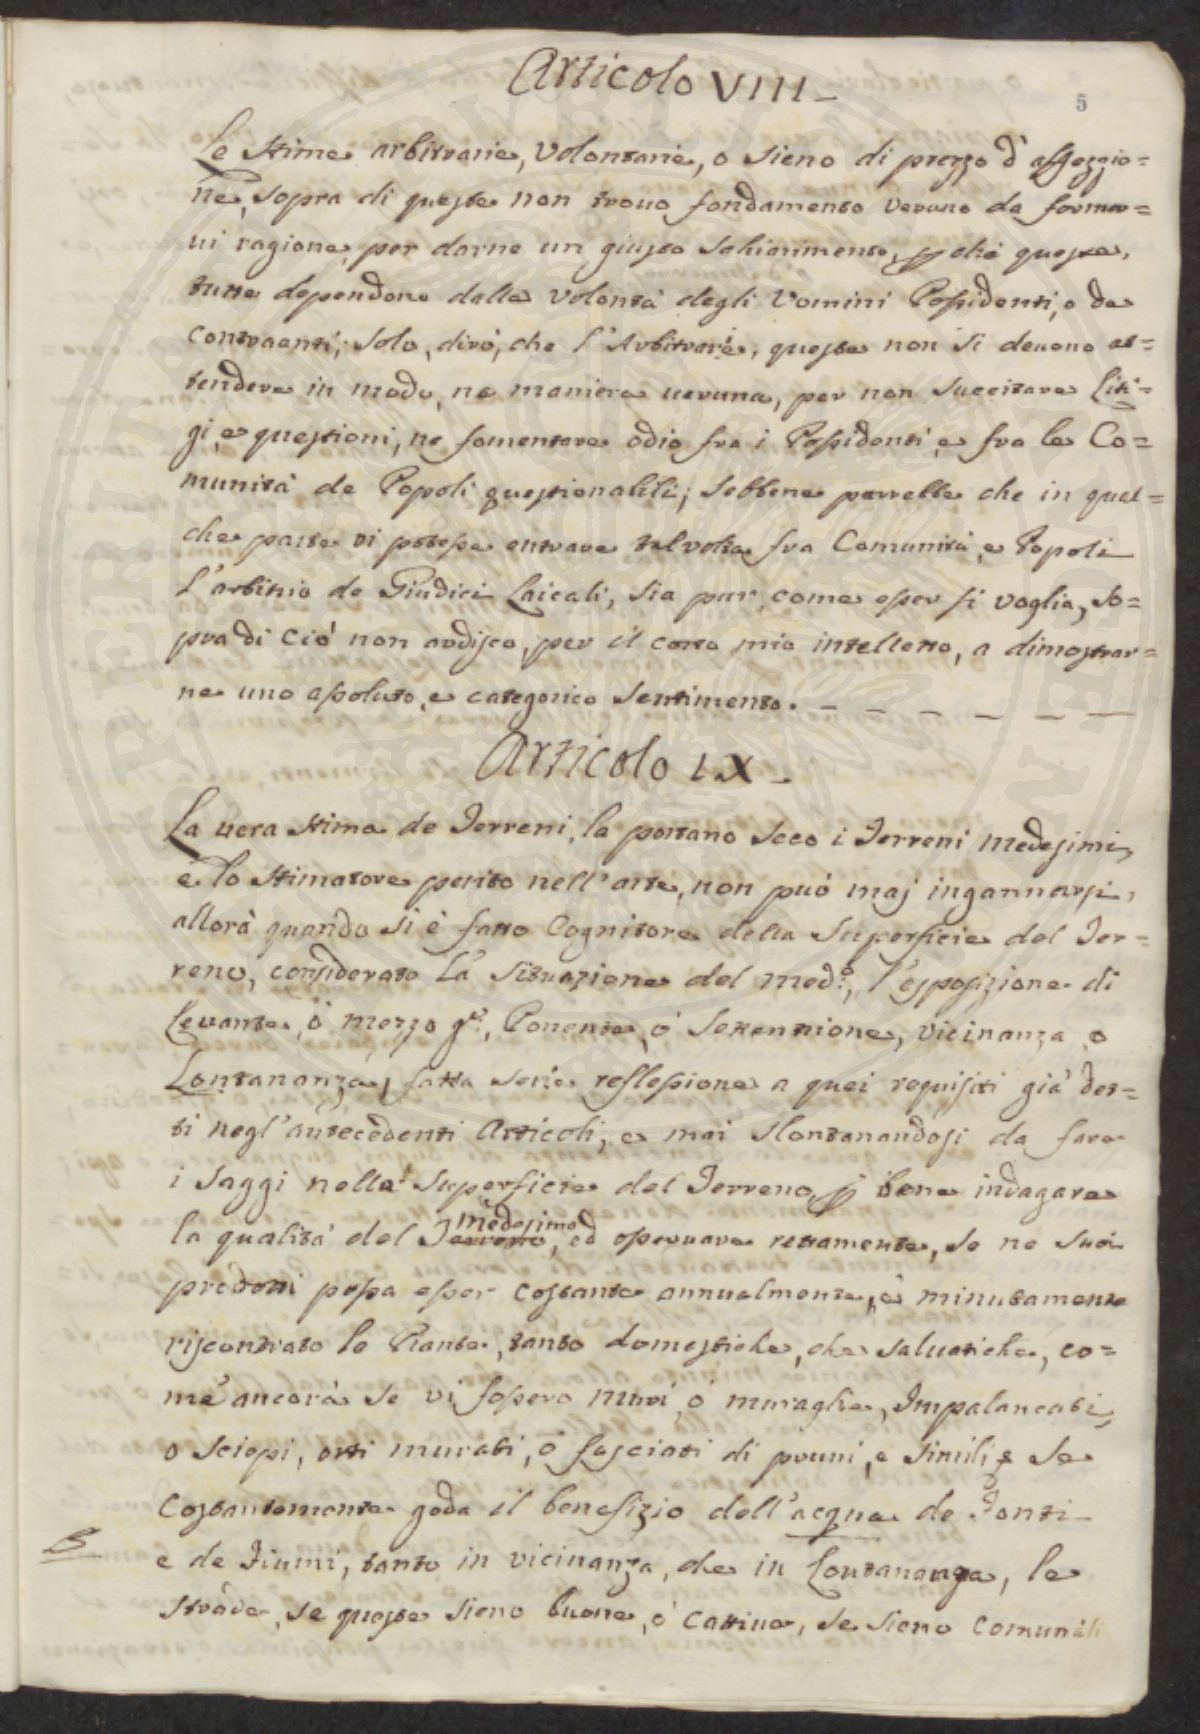 Articolo VIII
5
Le stime arbitrarie, Volontarie, o sieno di prezzo d'affezzio=
ne, sopra di queste non trovo fondamento veruno da formar=
vi ragione, per darne un giusto schiarimento, p che queste,
tutte dependono dalla volontà degli Uomini Possidenti, o da
Contraenti; solo, dirò, che l'Arbitrarie, queste non si devono at=
tendere in modo, ne maniera veruna, per non succitare Liti=
gi, e questioni, ne fomentare odio fra i Possidenti, e fra le Co=
munità de Popoli questionabili; sebbene parrebbe che in qual=
che parte vi potesse entrare talvolta fra Comunità, e Popoli
l'arbitrio de Giudici Laicali, sia pur, come esser si voglia, so=
pra di ciò non ardisco, per il corto mio intelletto, a dimostrar=
ne uno assoluto, e categorico sentimento.
Articolo IX
La vera stima de Terreni, la portano seco i Terreni medesimi,
e lo stimatore perito nell'arte, non può maj ingannarsi,
allorà quando si è fatto Cognitore della Superficie del Ter=
reno, considerato La situazione del med.º, l'esposizione di
Levante, ò mezzo g.º, Ponente, ò Settentrione, vicinanza, o
Lontananza, fatta serie reflessione a quei requisiti già det=
ti negl'antecedenti Articoli, e mai slontanandosi da fare
i saggi nella superficie del Terreno, p bene indagare
la qualità del Terreno medesimo, ed osservare rettamente, se ne suoi
predotti possa esser costante annualmente, e minutamente
riscontrato le Piante, tanto domestiche, che salvatiche, co=
me ancorà se vi fossero muri, ò muraglie, Impalancati,
o Sciepi, orti murati, ò fasciati di pruni, e simili, e se
Costantemente goda il benefizio dell'acqua de Fonti
e de Fiumi, tanto in vicinanza, che in Lontananza, le
strade, se queste sieno buone, ò cattive, se sieno comunali